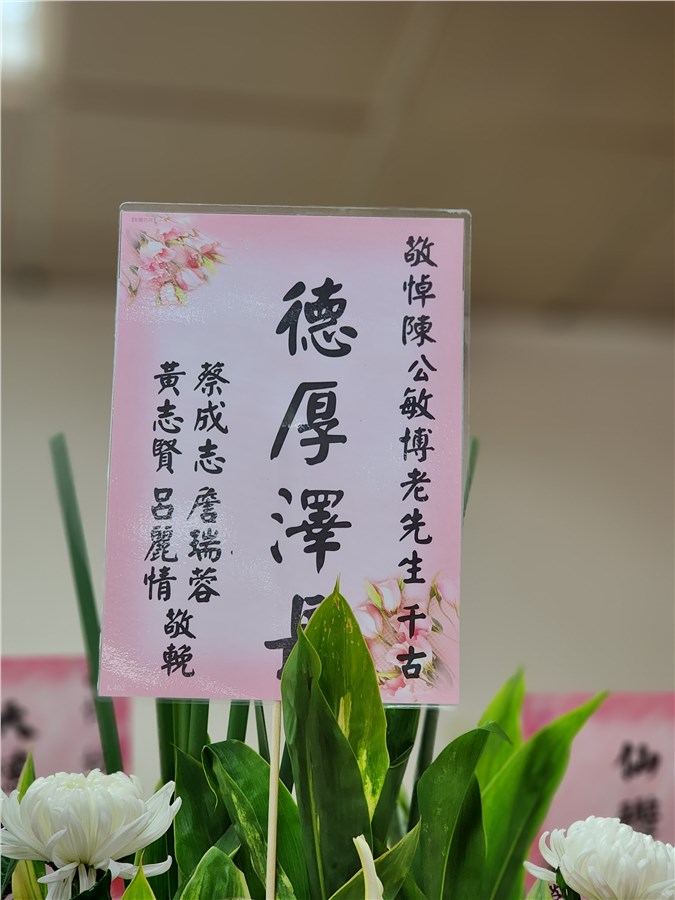 敬悼陳公敏博老先生 千古
德厚澤長
蔡成志 詹瑞蓉
黃志賢 呂麗情
敬輓
仙